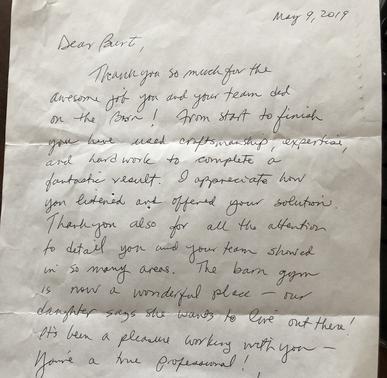 May 9, 2019
Dear Burt,
Thank you so much for the
awesome job you and your team did
on the Barn! From start to finish
you have used craftsmanship, expertise,
and hard work to complete a
fantastic result. I appreciate how
you listened and offered your solution.
Thank you also for all the attention
to detail you and your team showed
in so many areas. The barn gym
is now a wonderful place — our
daughter says she wants to live out there!
It's been a pleasure working with you —
You're a true professional!